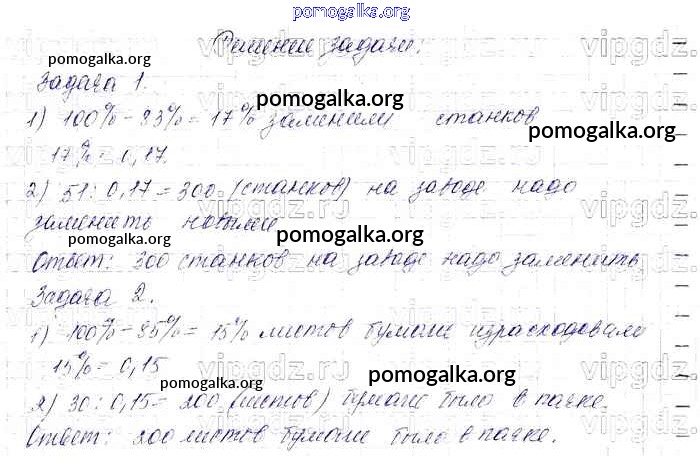 pomogalka.org
Решение задачи:
Задача 1.
1) 100% - 83% = 17% заменили станков
17% = 0,17.
2) 51 : 0,17 = 300 (станков) на заводе надо
заменить новыми
Ответ: 300 станков на заводе надо заменить.
Задача 2.
1) 100% - 85% = 15% листов бумаги израсходовали
15% = 0,15
2) 30 : 0,15 = 200 (листов) бумаги было в пачке.
Ответ: 200 листов бумаги было в пачке.
pomogalka.org
pomogalka.org
pomogalka.org
pomogalka.org
pomogalka.org
pomogalka.org
vipgdz.ru
vipgdz.ru
vipgdz.ru
vipgdz.ru